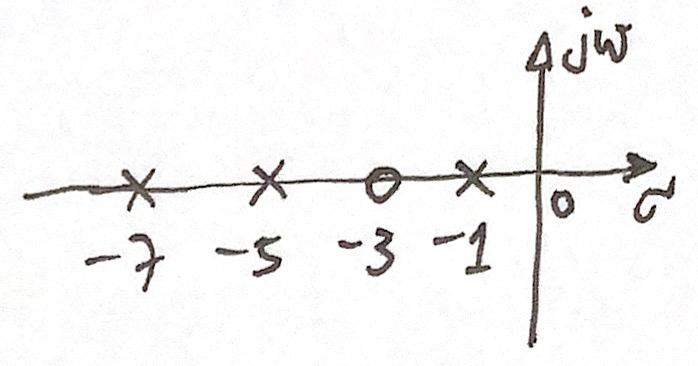 jw
0 σ
-7 -5 -3 -1